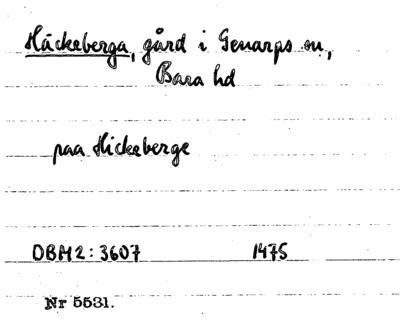 Häckeberga, gård i Genarps sn,
Bara hd
paa Hickeberge
DBM2:3607 1475
Nr 5531.